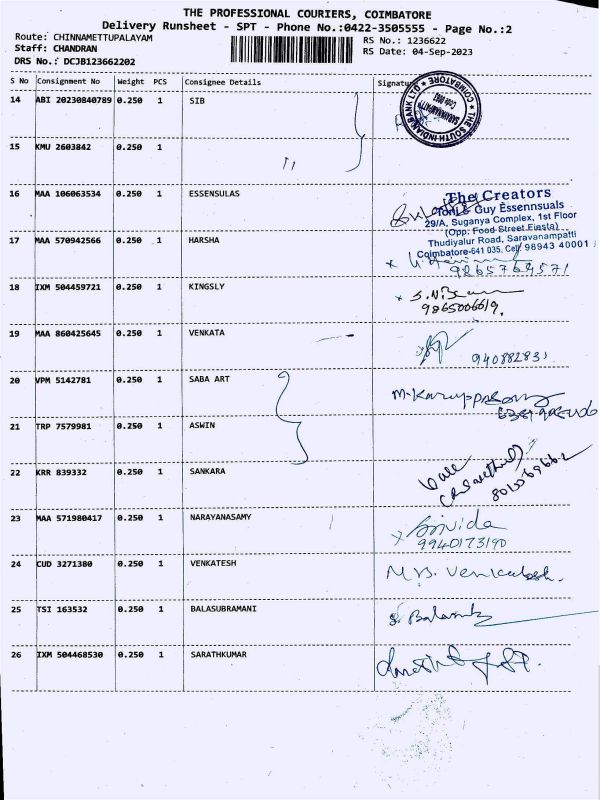 THE PROFESSIONAL COURIERS, COIMBATORE
Delivery Runsheet - SPT - Phone No.:0422-3505555 - Page No.:2
Route: CHINNAMETTUPALAYAM
RS No.: 1236622
Staff: CHANDRAN
RS Date: 04-Sep-2023
DRS No.: DCJB123662202
S No Consignment No Weight PCS Consignee Details Signature
14 ABI 20230840789 0.250 1 SIB
THE SOUTH INDIAN BANK LTD COIMBATORE
15 KMU 2603842 0.250 1
16 MAA 106063534 0.250 1 ESSENSULAS
The Creators
Toni & Guy Essennsuals
29/A, Suganya Complex, 1st Floor
(Opp. Food Street Fiesta)
Thudiyalur Road, Saravanampatti
Coimbatore-641 035. Cell: 98943 40001
17 MAA 570942566 0.250 1 HARSHA
9865764571
18 IXM 504459721 0.250 1 KINGSLY
9865006619.
19 MAA 860425645 0.250 1 VENKATA
20 VPM 5142781 0.250 1 SABA ART
21 TRP 7579981 0.250 1 ASWIN
22 KRR 839332 0.250 1 SANKARA
23 MAA 571980417 0.250 1 NARAYANASAMY
9940173190
24 CUD 3271380 0.250 1 VENKATESH
M.B. Venkatesh.
25 TSI 163532 0.250 1 BALASUBRAMANI
26 IXM 504468530 0.250 1 SARATHKUMAR